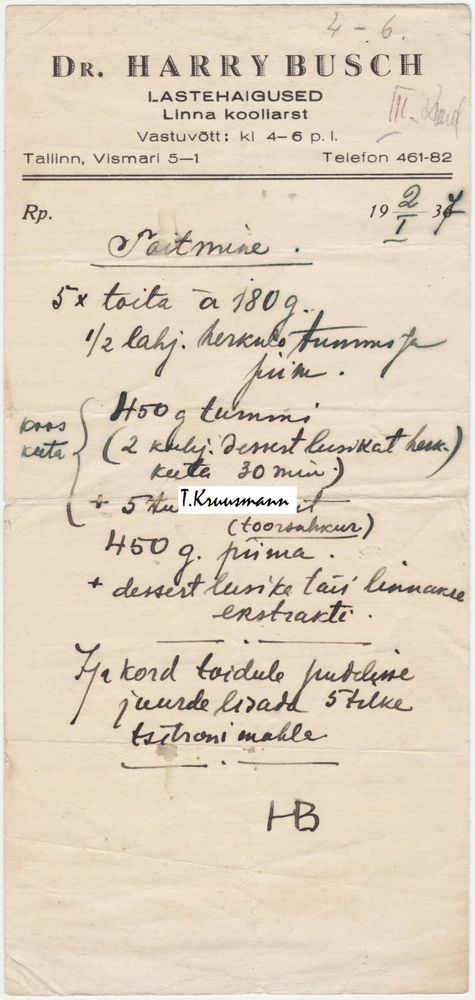 4 - 6.
DR. HARRY BUSCH
LASTEHAIGUSED
Linna kooliarst
III.
Vastuvõtt: kl 4–6 p. l.
Tallinn, Vismari 5–1 Telefon 461-82
Rp. 19 2/I 37
Toitmine.
5x toita à 180 g.
1/2 lahj. herkulo tummi ja
piim.
koos
keeta
450 g tummi
(2 kuhj. dessert lusikat herk.
keeta 30 min.)
+ 5
T. Kruusmann
(toorsuhkur.)
450 g. piima.
+ dessert lusika täis linnakse
ekstrakti.
Iga kord toidule pudelisse
juurde lisada 5 tilka
tsitroni mahla
HB